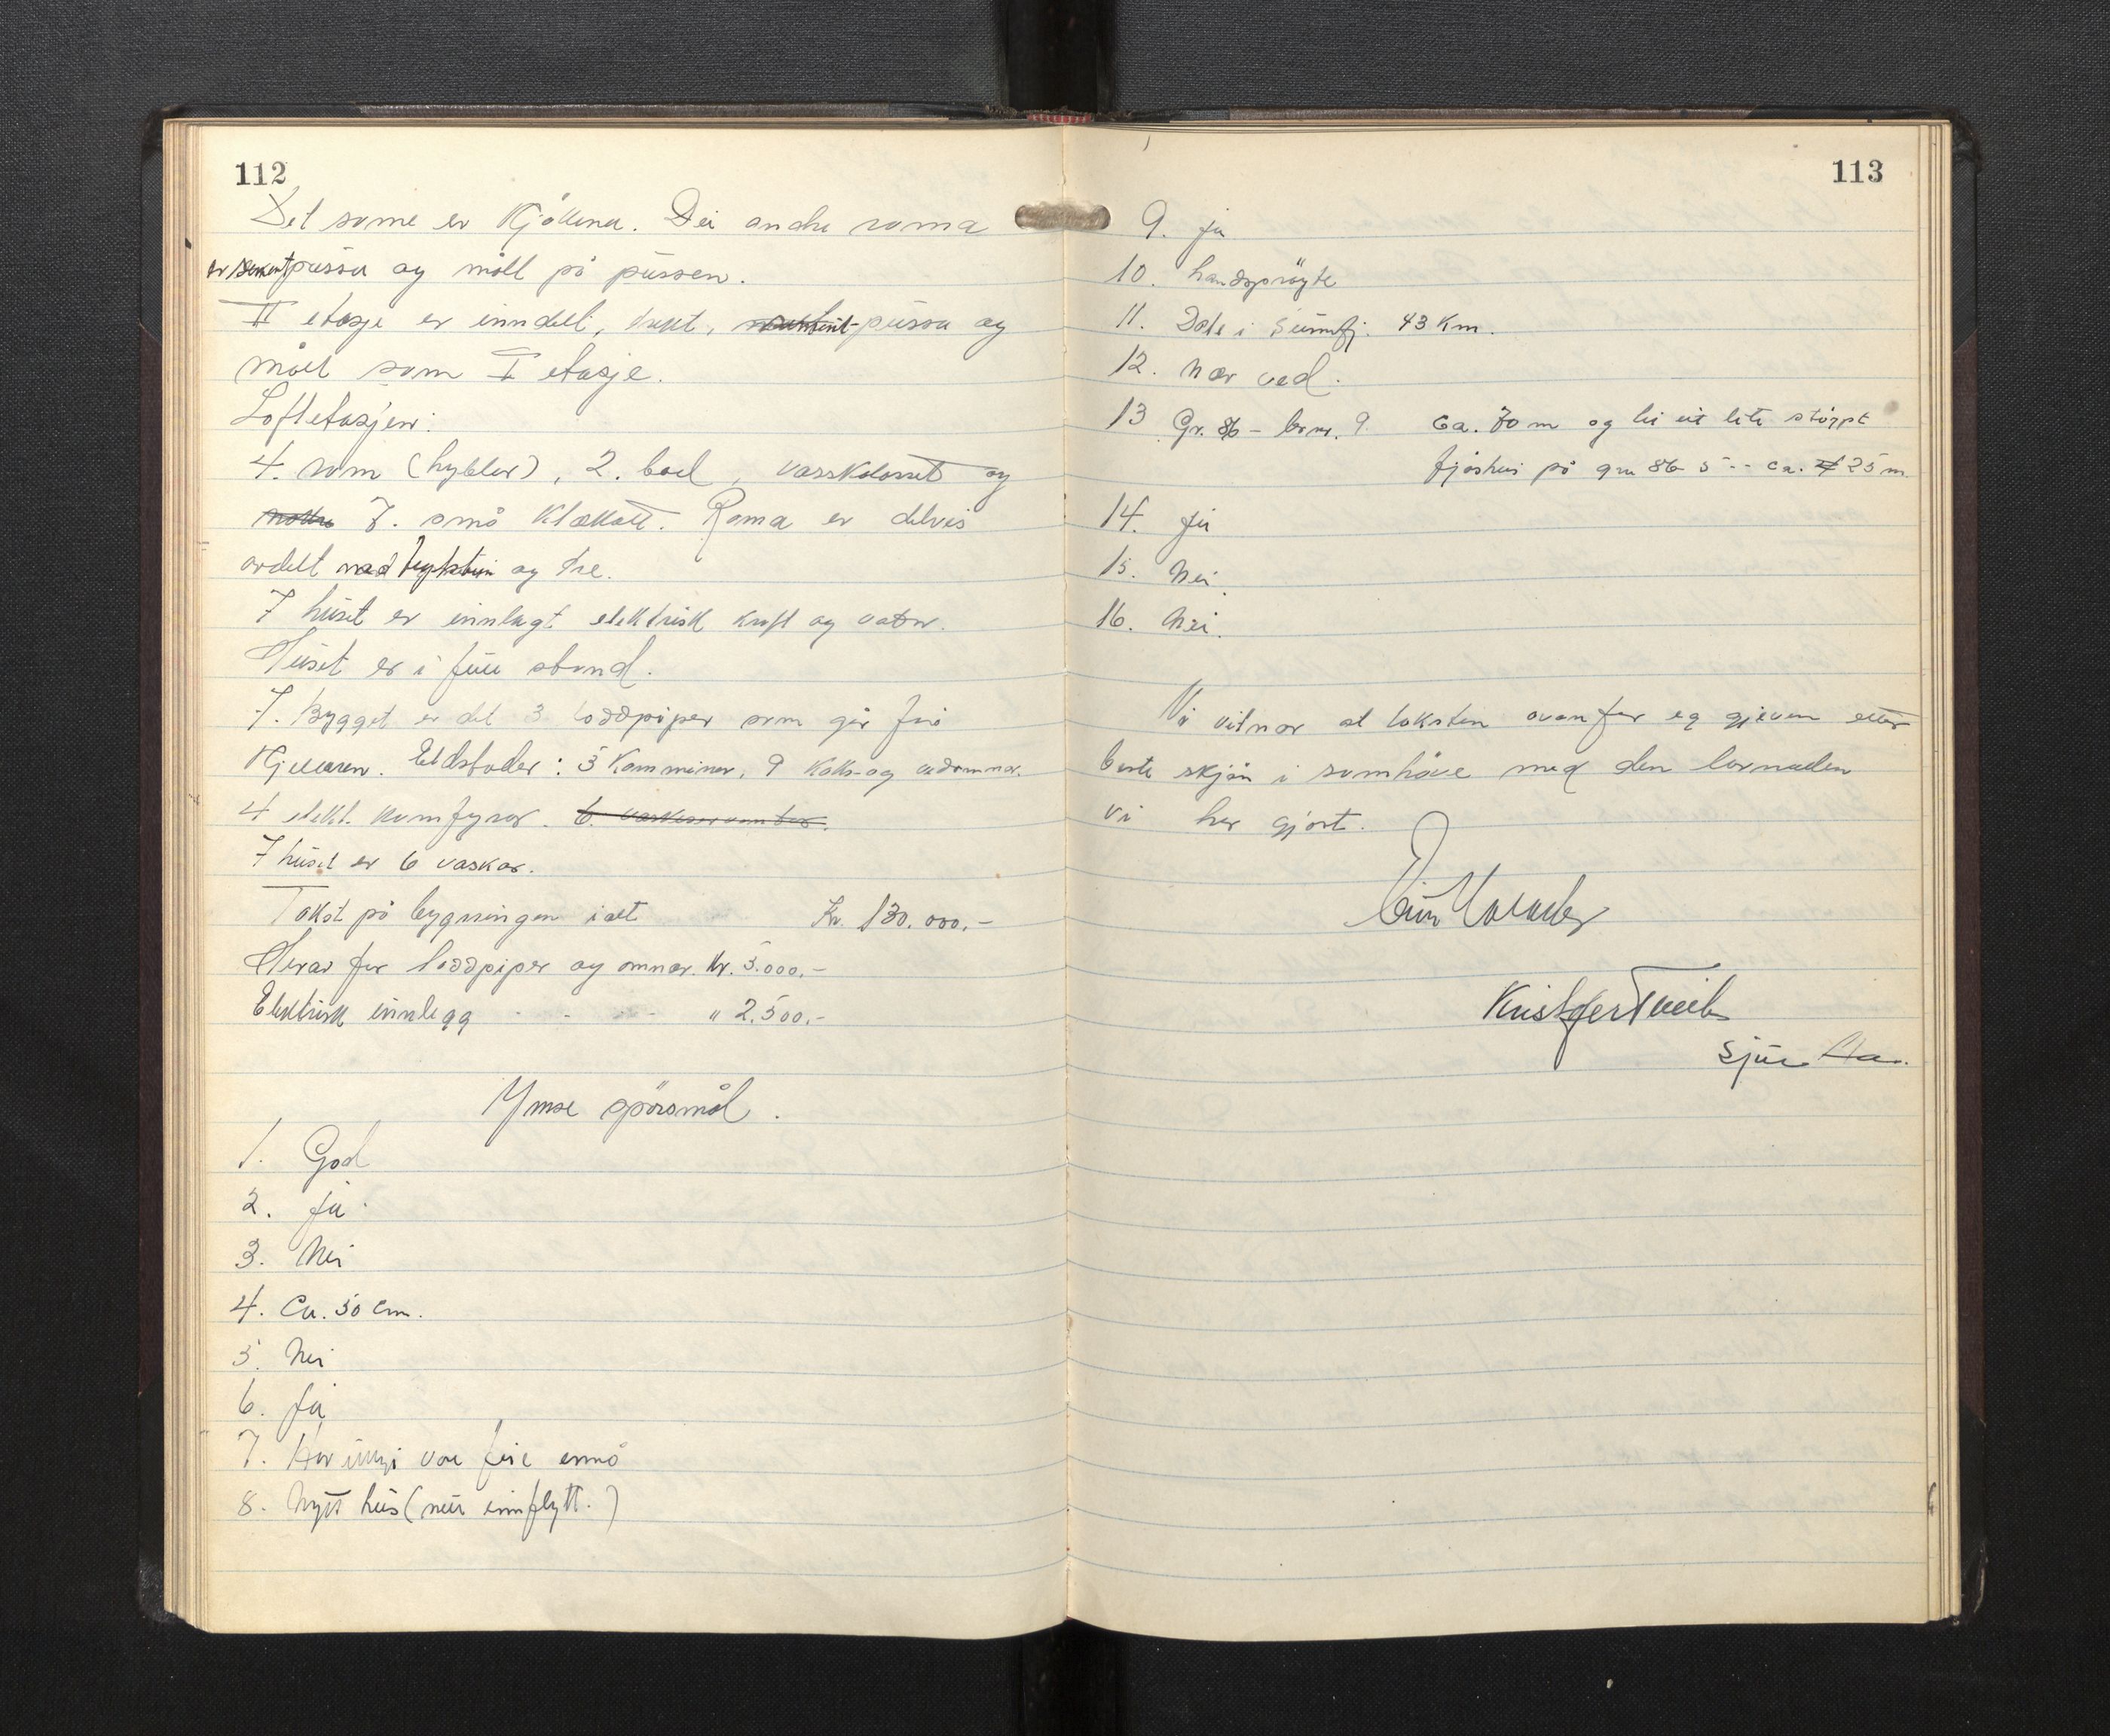 112
Det same er Kjøkena. Dei andre roma
er sementpussa og målt på pussen.
II etasje er inndelt, trekt, pussa og
målt som I etasje.
Loftetasjen:
4. rom (hybler), 2. bad, vassklosset og
7. små klækott. Roma er delvis
avdelt med teglstein og tre.
I huset er innlagt elektrisk kraft og vatn.
Huset er i full stand.
I. Bygget er det 3 loddpiper som går frå
Kjellaren. Eldstader: 3 Kamminer, 9 koks- og vedomnar.
4 elekt. komfyrar. 6.
I huset er 6 vaskar.
Takst på bygningen ialt Kr. 130.000.-
Herav for loddpiper og omnar. Kr. 5.000.-
Elektrisk innlegg - - - " 2.500.-
Ymse spörsmål.
1. God
2. ja
3. Nei
4. Ca. 50 cm.
5. Nei
6. Ja
7. Har ikkje vore feie ennå
8. Nytt hus (neu innflytt.)
113
9. ja
10. handspröyte
11. Dale i Sunnfj. 43 Km.
12. Nær ved.
13 Gr. 86 - br.nr. 9. Ca. 70 m og eit lite störpt
fjøshus på gnr 86 5 -- ca. 25 m.
14. Ja
15. Nei.
16. Nei.
Vi vitnar at taksten ovanfor er gjeven etter
beste skjön i samhöve med den lovnaden
vi har gjort.
Kristofer Tveit
Sjur